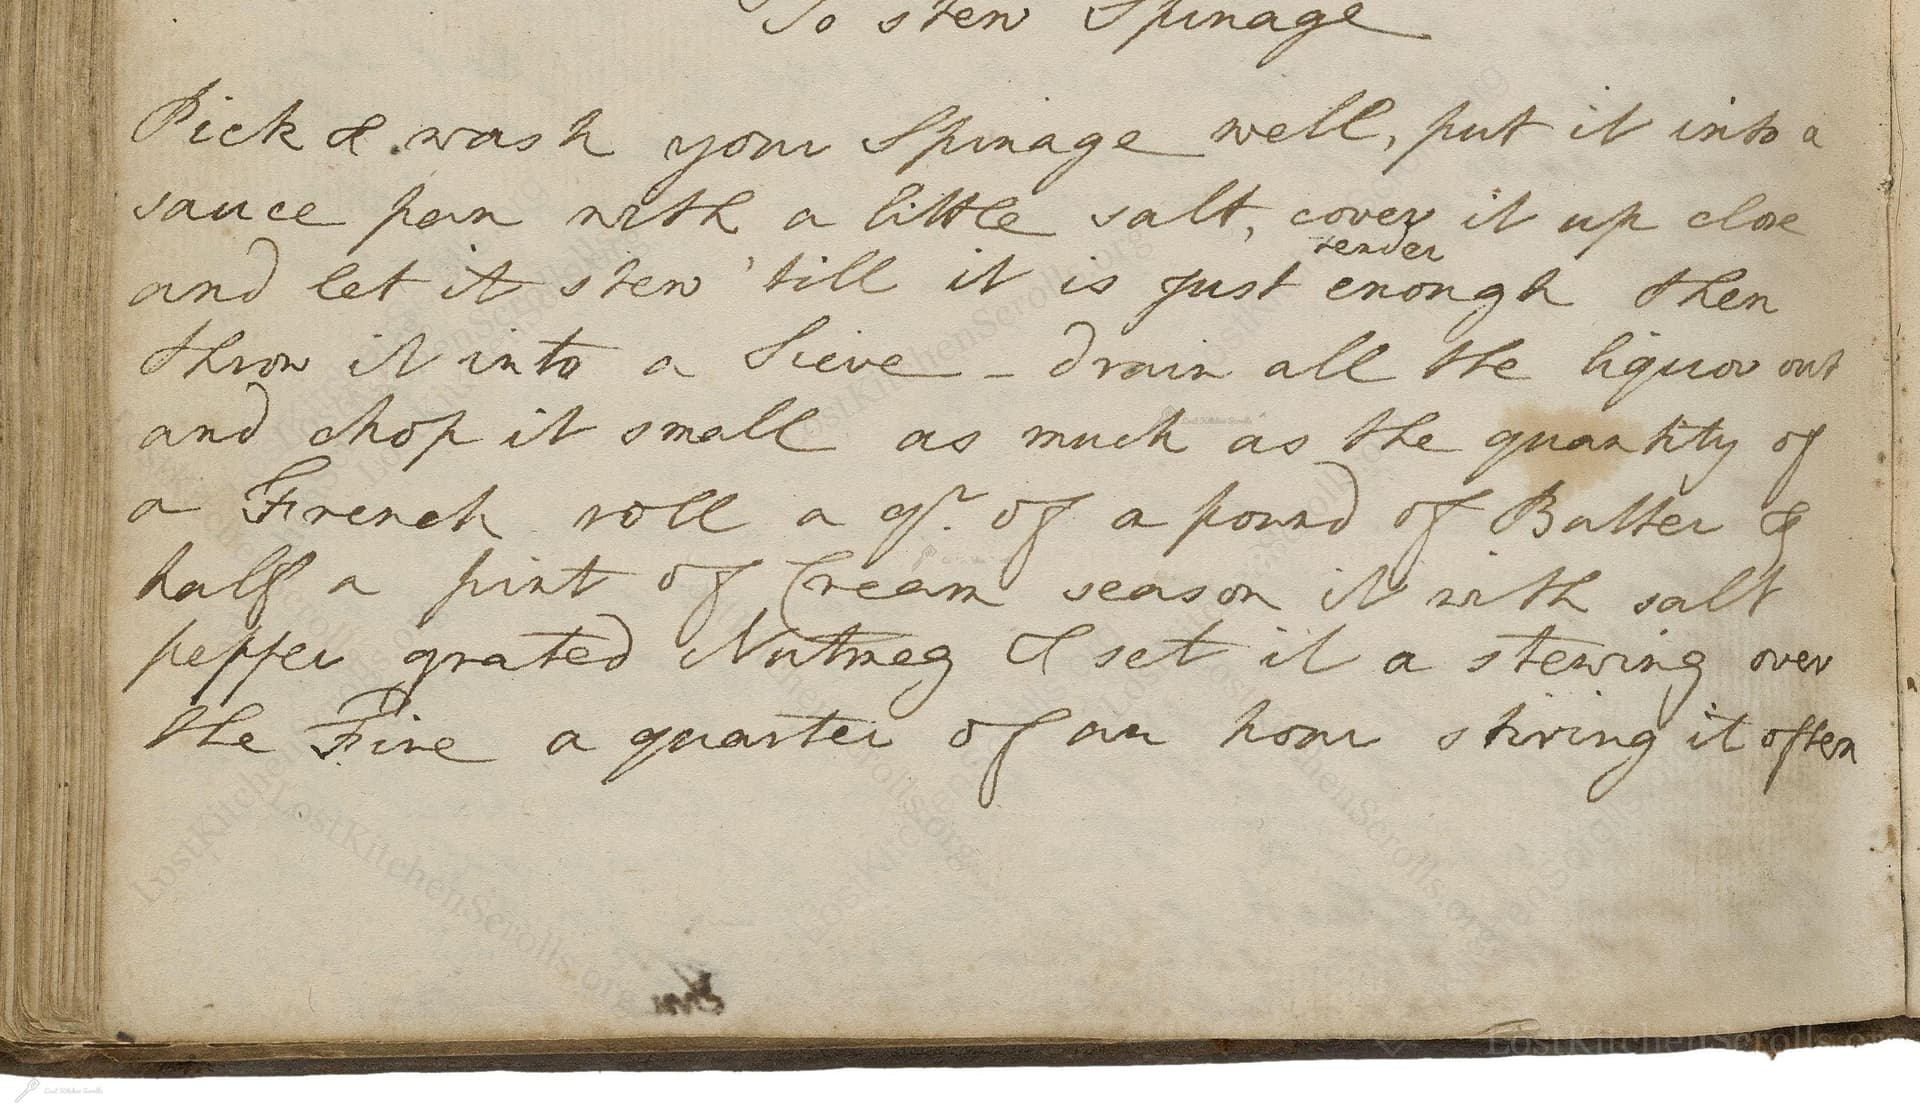 To stew Spinage
Pick & wash your Spinage well, put it into a
sauce pan with a little salt, cover it up close
tender
and let it stew 'till it is just enough then
throw it into a Sieve - drain all the liquor out
and chop it small as much as the quantity of
a French roll a qr. of a pound of Butter &
half a pint of Cream season it with salt
pepper grated Nutmeg & set it a stewing over
the Fire a quarter of an hour stiring it often
LostKitchenScrolls.org
Lost Kitchen Scrolls